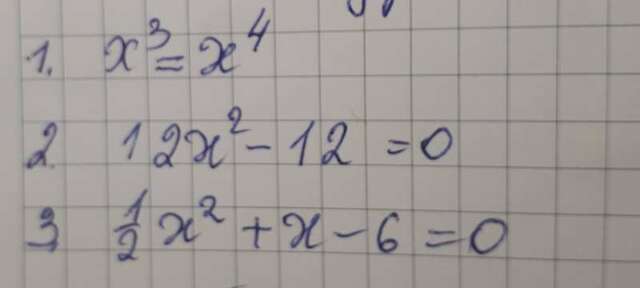 1. x³ = x⁴
2. 12x² - 12 = 0
3 ½x² + x - 6 = 0